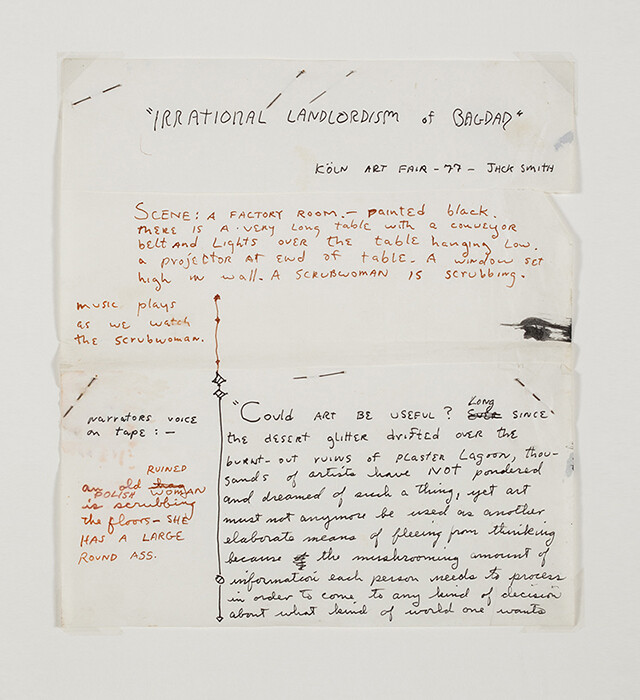 "IRRATIONAL LANDLORDISM of BAGDAD"
KÖLN ART FAIR - 77 - JACK SMITH
SCENE: A FACTORY ROOM. - painted black.
there is a very long table with a conveyor
belt and Lights over the table hanging Low.
a projector at end of table. A window set
high in wall. A SCRUBWOMAN is scrubbing.
music plays
as we watch
the scrubwoman.
narrators voice
on tape: -
RUINED
an old
POLISH WOMAN
is scrubbing
the floors - SHE
HAS A LARGE
ROUND ASS.
"COULD ART BE USEFUL? Long SINCE
the desert glitter drifted over the
burnt-out ruins of PLASTER LAGOON, thou-
sands of artists have NOT pondered
and dreamed of such a thing, yet art
must not anymore be used as another
elaborate means of fleeing from thinking
because the mushrooming amount of
information each person needs to process
in order to come to any kind of decision
about what kind of world one wants